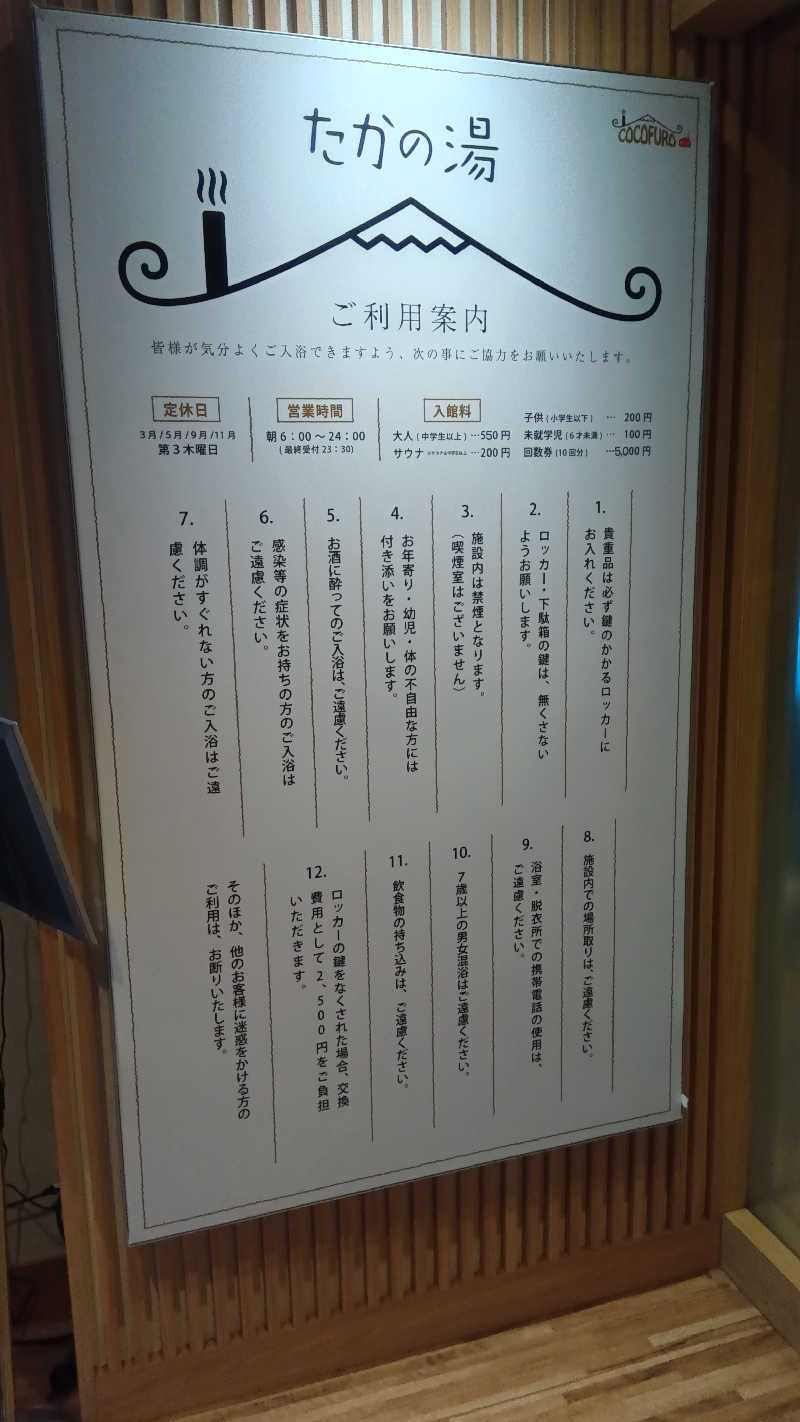 たかの湯
COCOFURO
ご利用案内
皆様が気分よくご入浴できますよう、次の事にご協力をお願いいたします。
定休日
3月/5月/9月/11月
第3木曜日
営業時間
朝6:00〜24:00
(最終受付23:30)
入館料
大人(中学生以上)…550円
サウナ …200円
子供(小学生以下) … 200円
未就学児(6才未満)… 100円
回数券(10回分) …5,000円
1.
貴重品は必ず鍵のかかるロッカーに
お入れください。
2.
ロッカー・下駄箱の鍵は、無くさない
ようお願いします。
3.
施設内は禁煙となります。
(喫煙室はございません)
4.
お年寄り・幼児・体の不自由な方には
付き添いをお願いします。
5.
お酒に酔ってのご入浴は、ご遠慮ください。
6.
感染等の症状をお持ちの方のご入浴は
ご遠慮ください。
7.
体調がすぐれない方のご入浴はご遠
慮ください。
8.
施設内での場所取りは、ご遠慮ください。
9.
浴室・脱衣所での携帯電話の使用は、
ご遠慮ください。
10.
7歳以上の男女混浴はご遠慮ください。
11.
飲食物の持ち込みは、ご遠慮ください。
12.
ロッカーの鍵をなくされた場合、交換
費用として2、500円をご負担
いただきます。
そのほか、他のお客様に迷惑をかける方の
ご利用は、お断りいたします。